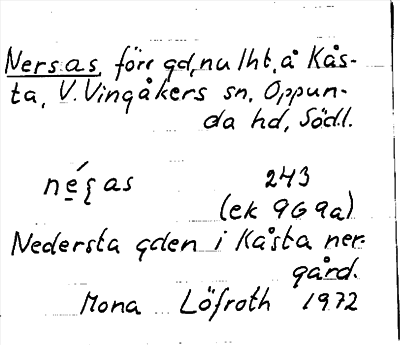 Nersas, förr gd, nu lht, å Kås-
ta, V. Vingåkers sn, Oppun-
da hd, Södl.
243
(ek 9G9a)
Nedersta gden i Kåsta ner-
gård.
Mona Löfroth 1972